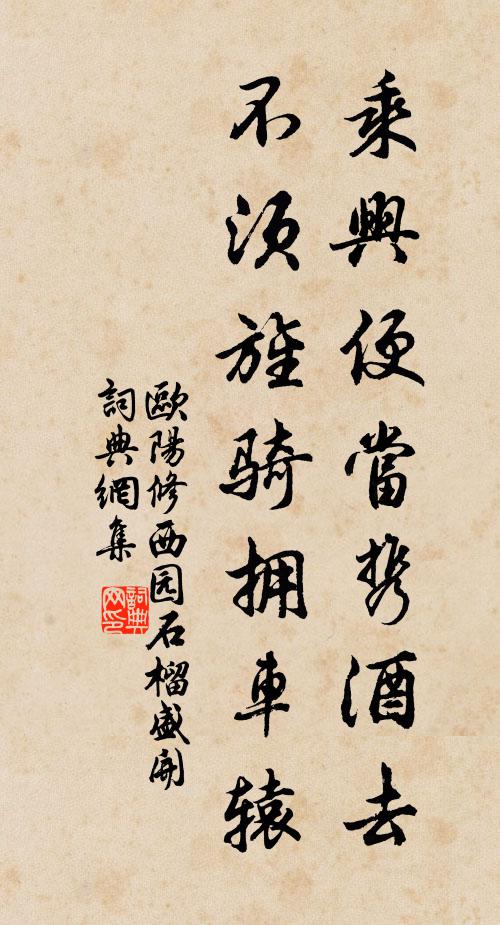 乘興便當携酒去
不须旌骑拥車辕
歐陽修西园石榴盛開
詞典網集
詞典
网印